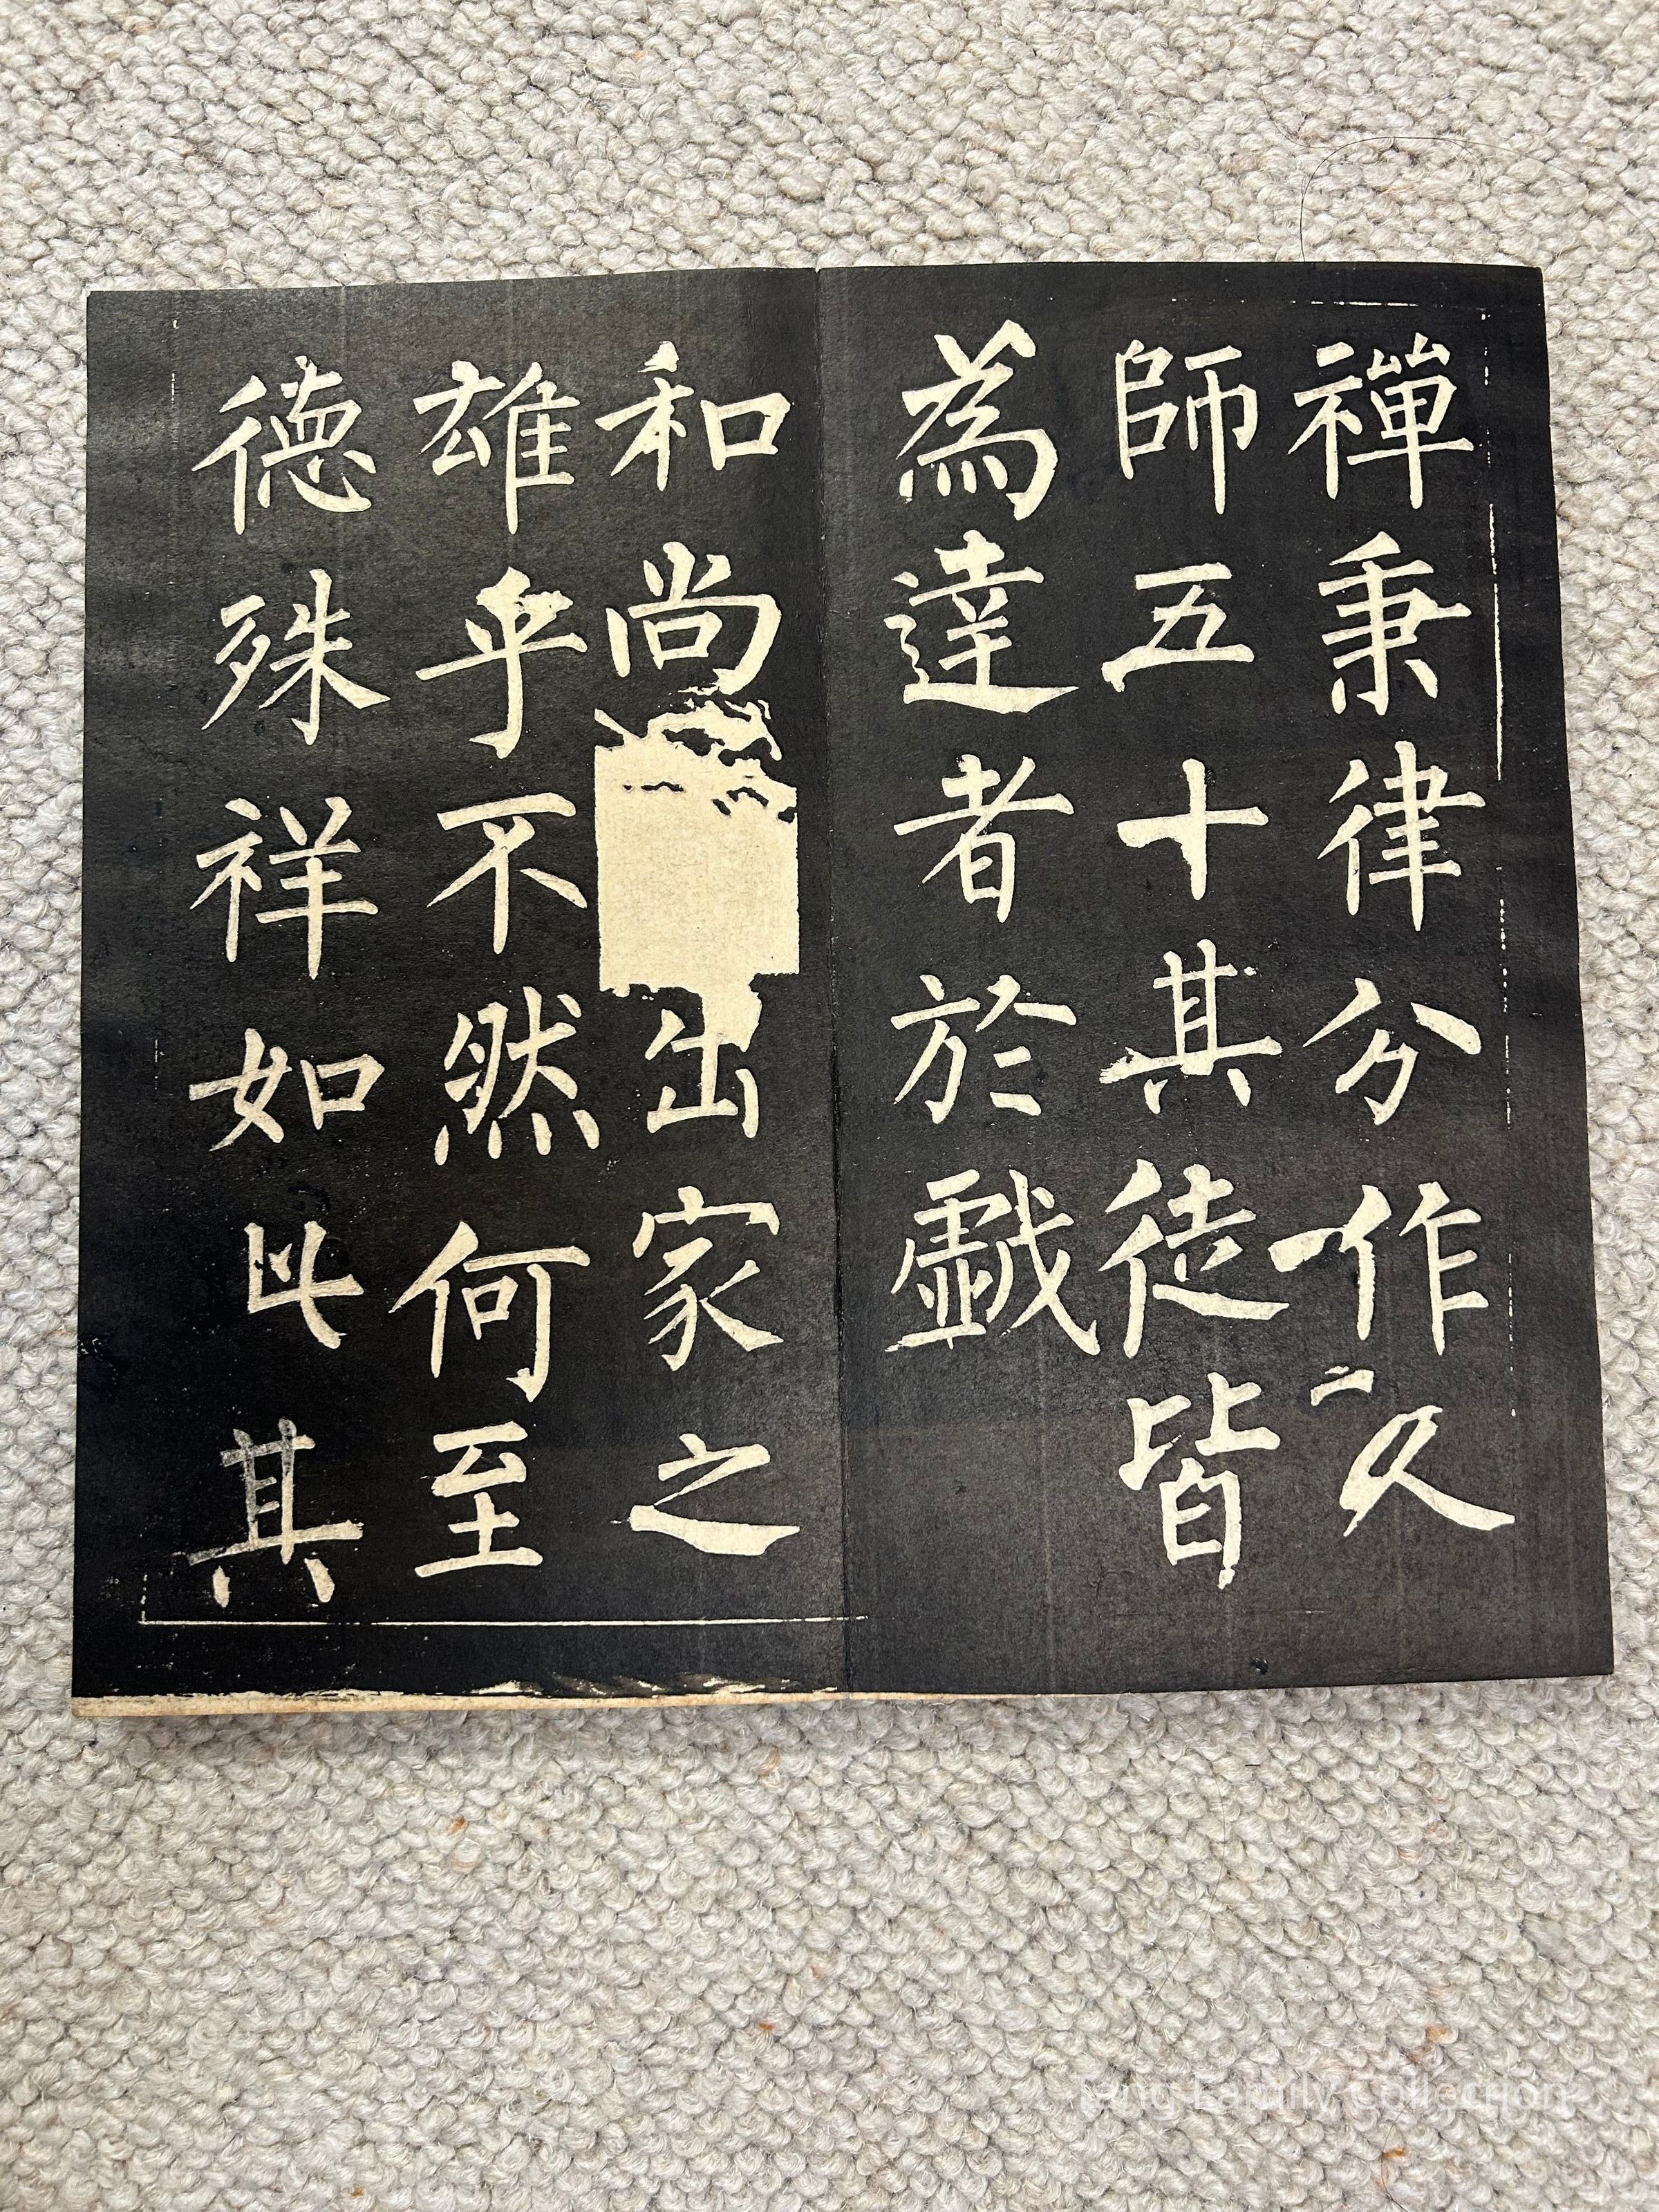 禪秉律分作人
師五十其徒皆
為達者於戲
和尚出家之
雄乎不然何至
德殊祥如此其
Family Collection